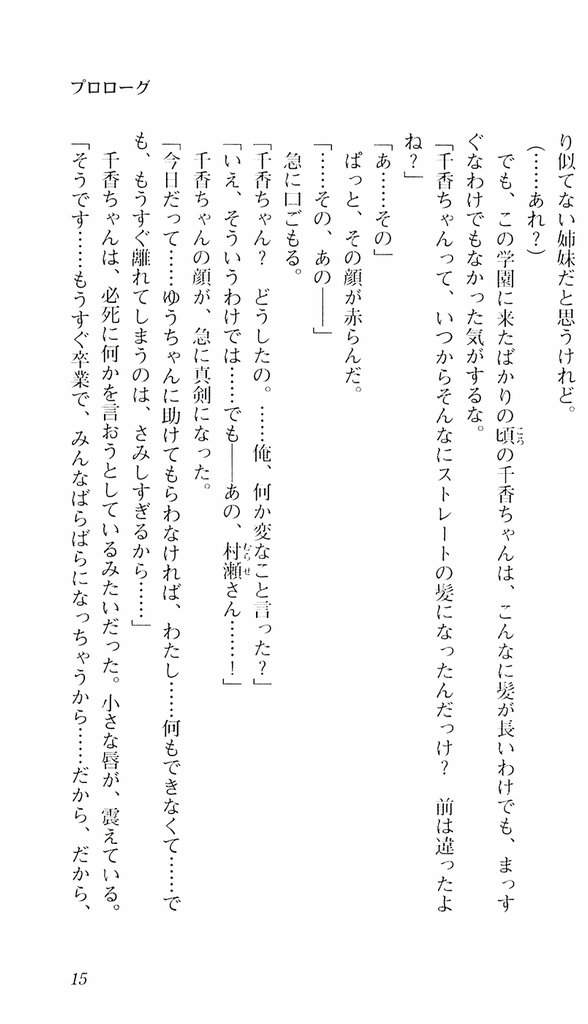 プロローグ
り似てない姉妹だと思うけれど。
(……あれ?)
でも、この学園に来たばかりの頃の千香ちゃんは、こんなに髪が長いわけでも、まっす
ころ
ぐなわけでもなかった気がするな。
「千香ちゃんって、いつからそんなにストレートの髪になったんだっけ? 前は違ったよ
ね?」
「あ……その」
ぱっと、その顔が赤らんだ。
「……その、あの――」
急に口ごもる。
「千香ちゃん? どうしたの。……俺、何か変なこと言った?」
「いえ、そういうわけでは……でも――あの、村瀬さん……!」
むらせ
千香ちゃんの顔が、急に真剣になった。
「今日だって……ゆうちゃんに助けてもらわなければ、わたし……何もできなくて……で
も、もうすぐ離れてしまうのは、さみしすぎるから……」
千香ちゃんは、必死に何かを言おうとしているみたいだった。小さな唇が、震えている。
「そうです……もうすぐ卒業で、みんなばらばらになっちゃうから……だから、だから、
15